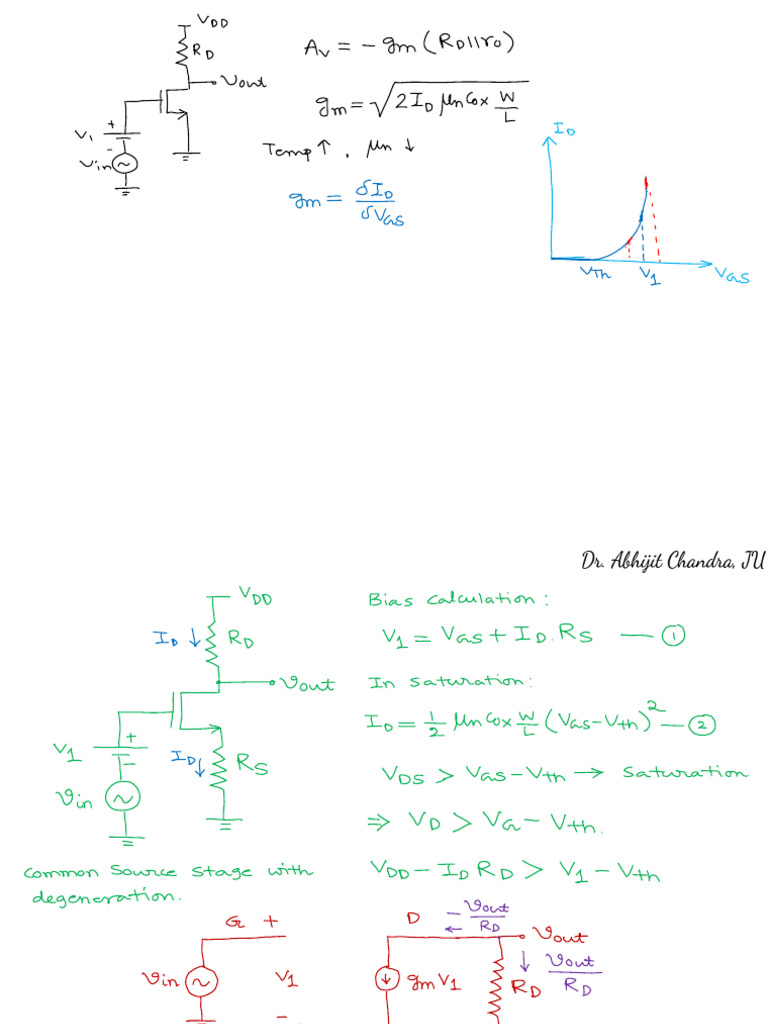 VDD
RD
Vout
V1
+
-
Vin
Av = - gm (RD||ro)
gm = √2ID μnCox W/L
Temp ↑ , μn ↓
gm = δID/δVGS
ID
VTh
V1
VGS
Dr. Abhijit Chandra, JU
VDD
ID ↓
RD
Vout
V1
+
-
ID ↓
RS
Vin
Common Source Stage with
degeneration.
Bias calculation:
V1 = VGS + ID.RS — ①
In saturation:
ID = 1/2 μnCox W/L (VGS-Vth)² — ②
VDS > VGS-Vth → Saturation
⇒ VD > VG - Vth.
VDD - ID RD > V1 - Vth
G +
Vin
V1
-
D
-Vout/RD
←
Vout
gmV1
RD
↓ Vout/RD